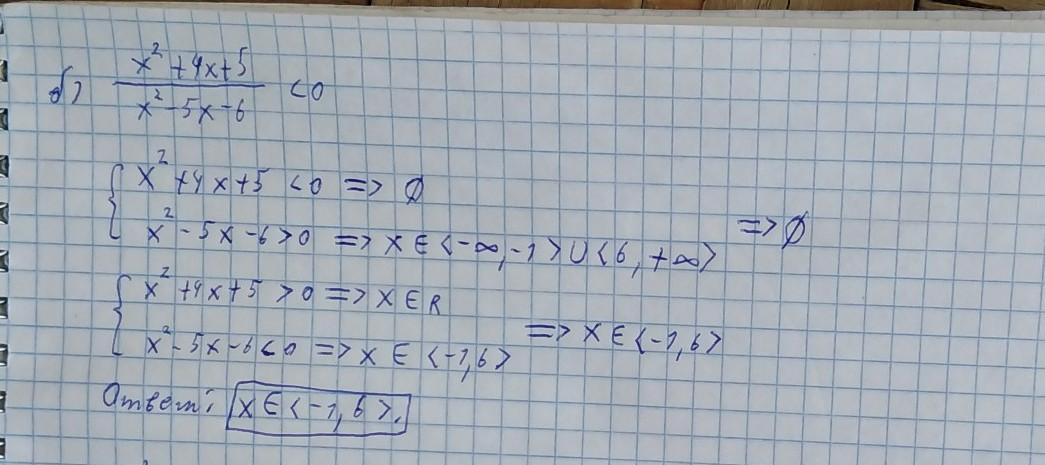 б) (x²+4x+5)/(x²-5x-6) <0
{ x²+4x+5 <0 => ∅
x²-5x-6>0 => x∈<-∞,-1>∪<6,+∞> => ∅
{ x²+4x+5 >0 => x∈R
x²-5x-6<0 => x∈<-1,6> => x∈<-1,6>
Ответ: x∈<-1,6>.